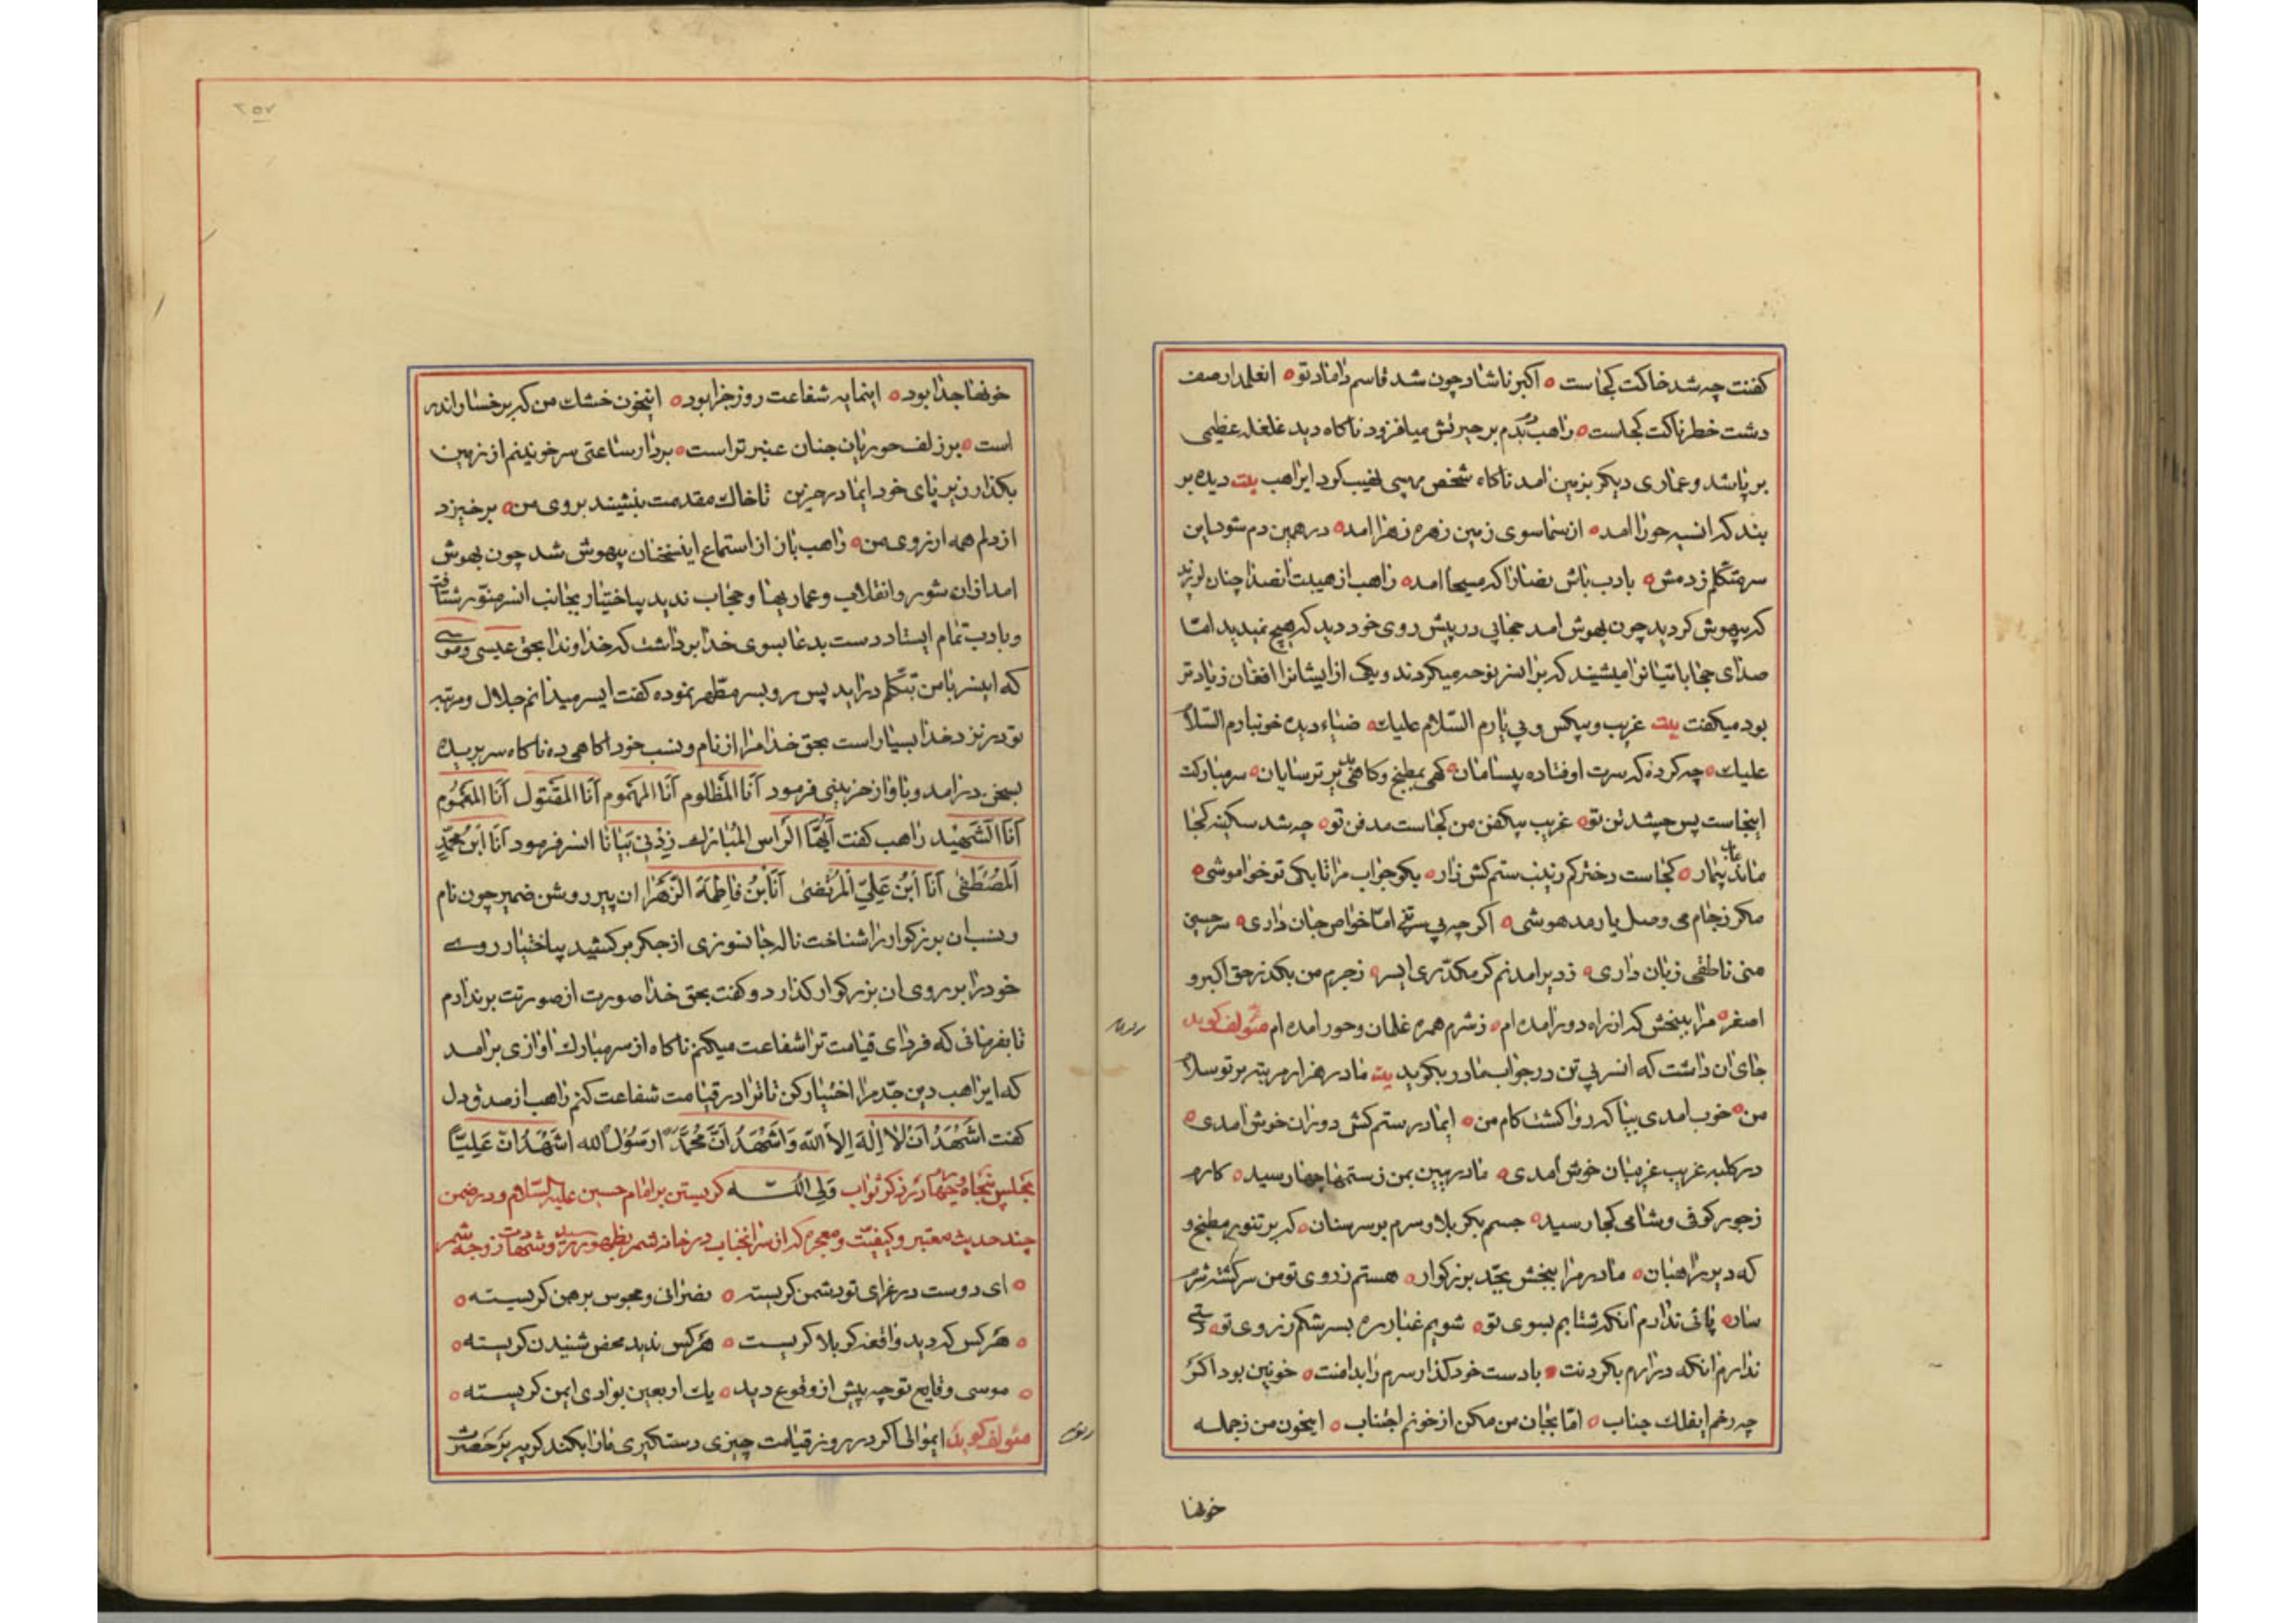 کفنت چه شد خاکت کجاست ٥ اکبر ناشاد چون شد قاسم داماد تو ٥ انعلمدار صف
دشت خطرناکت کجاست ٥ راهب دمبدم بر حیرتش میافزود ناکاه دید غلغله عظیمی
بر پا شد و عماری دیکر بزمین امد ناکاه شخص نهیب کرد ایراهب بیت دیده بر
بند که انسیه حورا امده ٥ از سما سوی زمین زهره زهرا امده ٥ در همین دم شود این
سر متکلم ز دمش ٥ بادب باش نصارا که مسیحا امده ٥ راهب از هیبت انصدا چنان لرزید
که بیهوش کردید چون بهوش امد حجابی در پیش روی خود دید که هیچ نمیدید اما
صدای حجاباتیانرا میشنید که بر انسر نوحه میکردند و یکی از ایشانرا افغان زیادتر
بود میکفت بیت غریب و بیکس و بی یارم السلام علیک ٥ ضیاء دیده خونبارم السلام
علیک ٥ چه کرده که سرت اوفتاده بیسامان ٥ کهی بمطبخ و کاهی بدیر ترسایان ٥ سر مبارکت
اینجاست پس چه شد تن تو ٥ غریب بیکفن من کجاست مدفن تو ٥ چه شد سکینه کجا
ماند عابد بیمار ٥ کجاست دخترکم زینب ستم کش زار ٥ بکو جواب مرا تا بکی تو خواموشی ٥
مکر ز جام می وصل یار مدهوشی ٥ اکر چه بی سر تنی اما خواص جان داری ٥ سر حسین
منی ناطقی زبان داری ٥ ز دیر امدنم کر مکدری ایسر ٥ ز جرم من بکذر حق اکبر و
اصغر ٥ مرا ببخش که از راه دور امده ام ٥ ز شرم همره غلمان و حور امده ام مؤلف کوید
جای ان داشت که انسر بی تن در جواب مادر بکوید بیت مادر هزار مرتبه بر تو سلام
من ٥ خوب امدی بیا که روا کشت کام من ٥ ایمادر ستم کش دوران خوش امدی ٥
در کلبه غریب غریبان خوش امدی ٥ مادر ببین بمن ز ستمها چها رسید ٥ کارم
ز جور کوفی و شامی کجا رسید ٥ جسم بکربلا و سرم بر سر سنان ٥ که بر تنور مطبخ و
که دیر راهبان ٥ مادر مرا ببخش بجد بزرکوار ٥ هستم ز روی تو من سرکشته شرم
سار ٥ پائی ندارم انکه شتابم بسوی تو ٥ شویم غبار ره بسر شکم ز روی تو ٥ دستی
ندارم انکه درارم بکردنت ٥ با دست خود کذار سرم را بدامنت ٥ خونین بود اکر
چه رخم ایفلک جناب ٥ اما بجان من مکن از خونم اجتناب ٥ اینخون من ز جمله
خونها
خونها جدا بود ٥ اینمایه شفاعت روز جزا بود ٥ اینخون خشک من که برخسار اندر
است ٥ بر زلف حوریان جنان عنبر تر است ٥ بردار ساعتی سر خونینم از زمین
بکذار زیر پای خود ایمادر حزین تا خاک مقدمت بنشیند بروی من ٥ برخیزد
از دلم همه ارزوی من ٥ راهب باز از استماع اینسخنان بیهوش شد چون بهوش
امد از ان شور و انقلاب و عماریها و حجاب ندید بیاختیار بجانب انسر منور شتافت
و بادب تمام ایستاد دست بدعا بسوی خدا برداشت که خداوندا بحق عیسی و موسی
که اینسر با من بتکلم دراید پس رو بسر مطهر نموده کفت ایسر میدانم جلال و مرتبه
تو در نزد خدا بسیار است بحق خدا مرا از نام و نسب خود اکاهی ده ناکاه سر بریده
بسخن درامد و باواز حزینی فرمود اَنَا المَظلوم اَنَا المَهموم اَنَا المَقتول اَنَا المَغمُوم
اَنَا الشَهیْد راهب کفت اَیُّهَا الرَاسُ المُبارَک زِدْنی بَیانًا انسر فرمود اَنَا ابْنُ مُحَمَّدٍ
اَلْمُصْطَفی اَنَا ابْنُ عَلِیٍّ الْمُرْتَضی اَنَا ابْنُ فاطِمَةَ الزَّهْرا ان پیر روشن ضمیر چون نام
و نسب ان بزرکوار را شناخت ناله جانسوزی از جکر برکشید بیاختیار روی
خود را بر روی ان بزرکوار کذارد و کفت بحق خدا صورت از صورتت برندارم
تا بفرمائی که فردای قیامت ترا شفاعت میکنم ناکاه از سر مبارک اوازی برامد
که ایراهب دین جدّ مرا اختیار کن تا ترا در قیامت شفاعت کنم راهب از صدق دل
کفت اَشْهَدُ اَنْ لا اِلهَ اِلاَّ اللّه وَ اَشْهَدُ اَنَّ مُحَمَّداً رَسُولُ الله اَشْهَدُ اَنَّ عَلِیًّا
مجلس پنجاه و چهارم در ذکر ثواب وَلِیُّ اللّه کریستن بر امام حسین علیه السّلام و در ضمن
چند حدیث معتبر و کیفیّت و معجزه که از سر انجناب در خانه شمر بظهور رسید و شهادت زوجه شمر
٥ ای دوست در عزای تو دشمن کریسته ٥ نصرانی و مجوس برهمن کریسته ٥
٥ هر کس که دید واقعه کربلا کریست ٥ هر کس ندید محض شنیدن کریسته ٥
٥ موسی وقایع تو چه پیش از وقوع دید ٥ یک اربعین بوادی ایمن کریسته ٥
مؤلف کوید ایموالی اکر در روز قیامت چیزی دستکیری ما را بکند کریه بر حضرت
٢٥٧